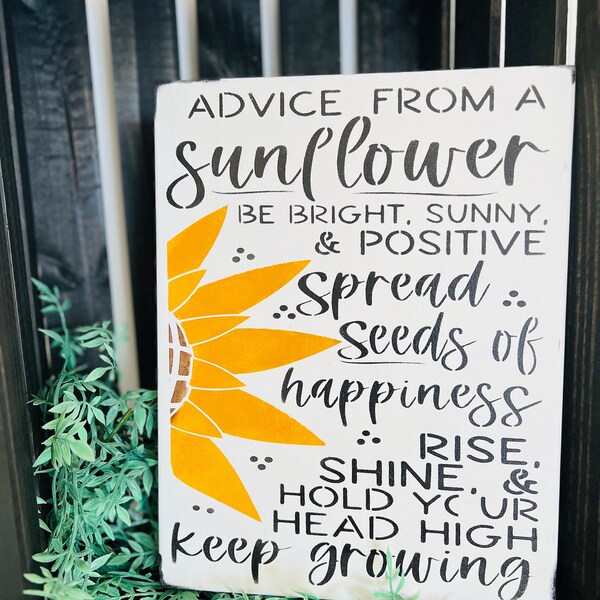 ADVICE FROM A
sunflower
BE BRIGHT, SUNNY,
& POSITIVE
spread
seeds of
happiness
RISE,
SHINE, &
HOLD YOUR
HEAD HIGH
keep growing